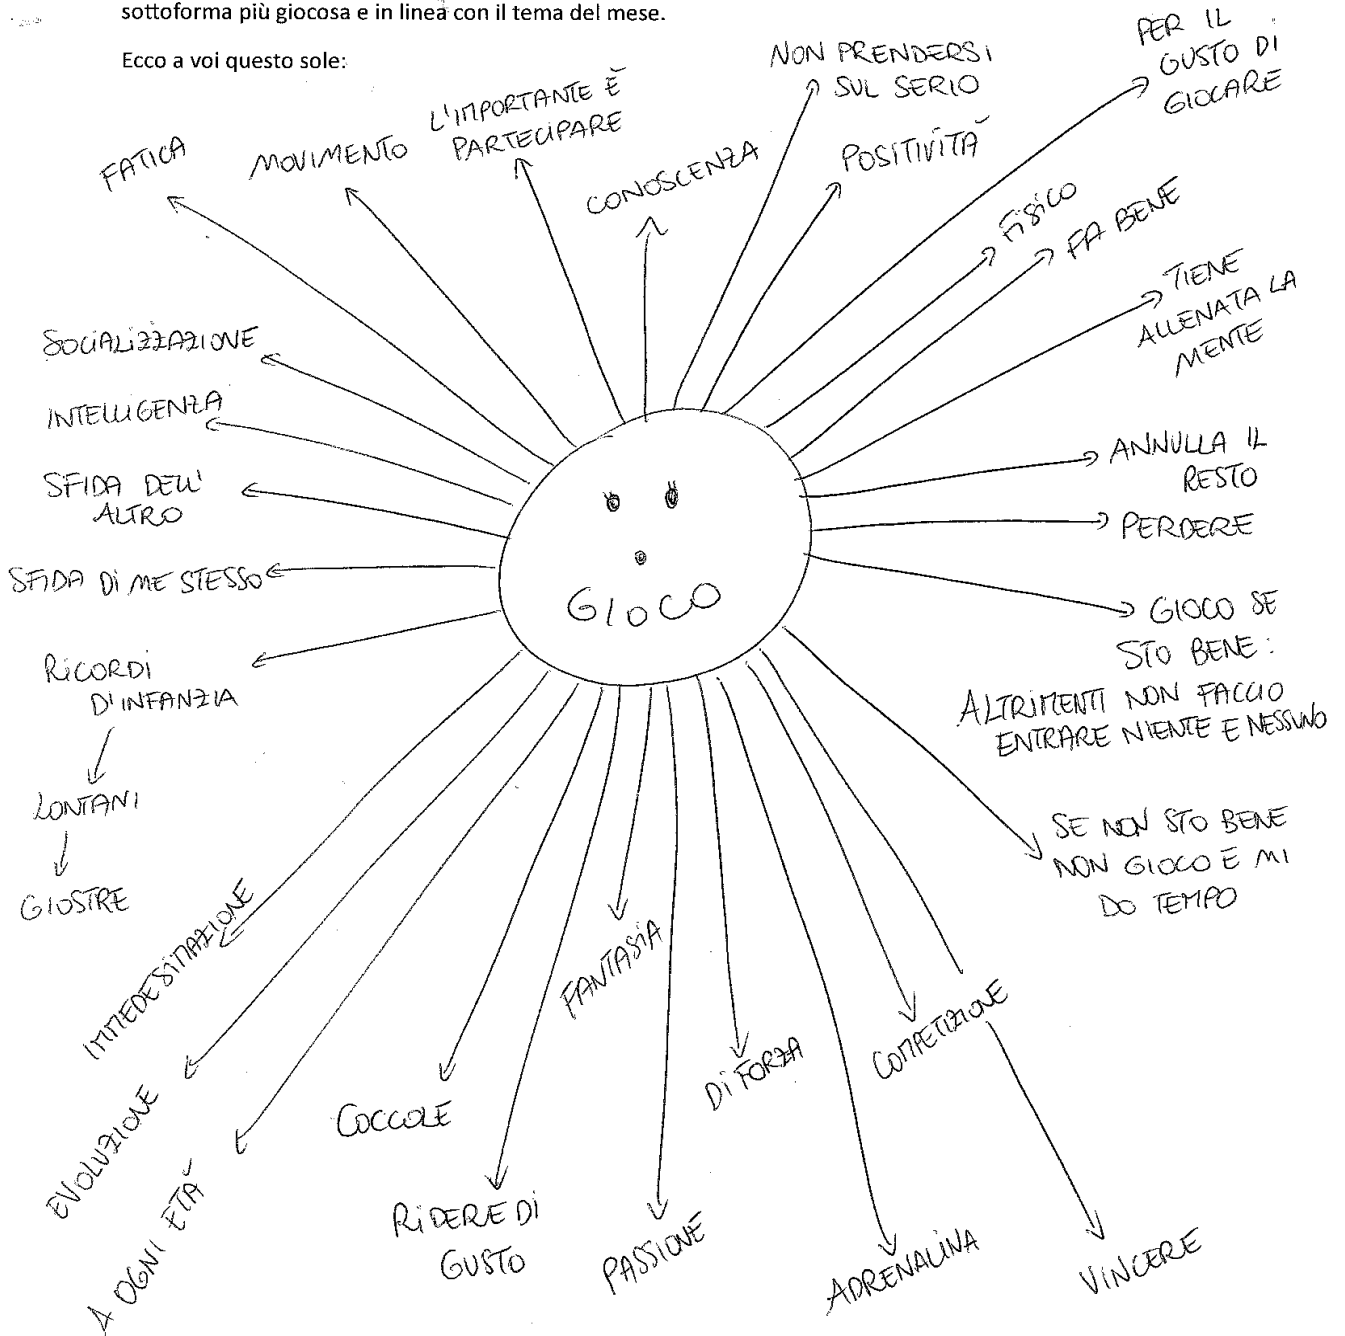 sottoforma più giocosa e in linea con il tema del mese.
Ecco a voi questo sole:
FATICA
MOVIMENTO
L'IMPORTANTE È
PARTECIPARE
CONOSCENZA
NON PRENDERSI
SUL SERIO
POSITIVITÀ
PER IL
GUSTO DI
GIOCARE
FISICO
FA BENE
TIENE
ALLENATA LA
MENTE
ANNULLA IL
RESTO
PERDERE
GIOCO SE
STO BENE:
ALTRIMENTI NON FACCIO
ENTRARE NIENTE E NESSUNO
SE NON STO BENE
NON GIOCO E MI
DO TEMPO
VINCERE
COMPETIZIONE
ADRENALINA
DI FORZA
PASSIONE
FANTASIA
RIDERE DI
GUSTO
COCCOLE
A OGNI ETÀ
EVOLUZIONE
IMMEDESIMAZIONE
RICORDI
D'INFANZIA
LONTANI
GIOSTRE
SFIDA DI ME STESSO
SFIDA DELL'
ALTRO
INTELLIGENZA
SOCIALIZZAZIONE
GIOCO